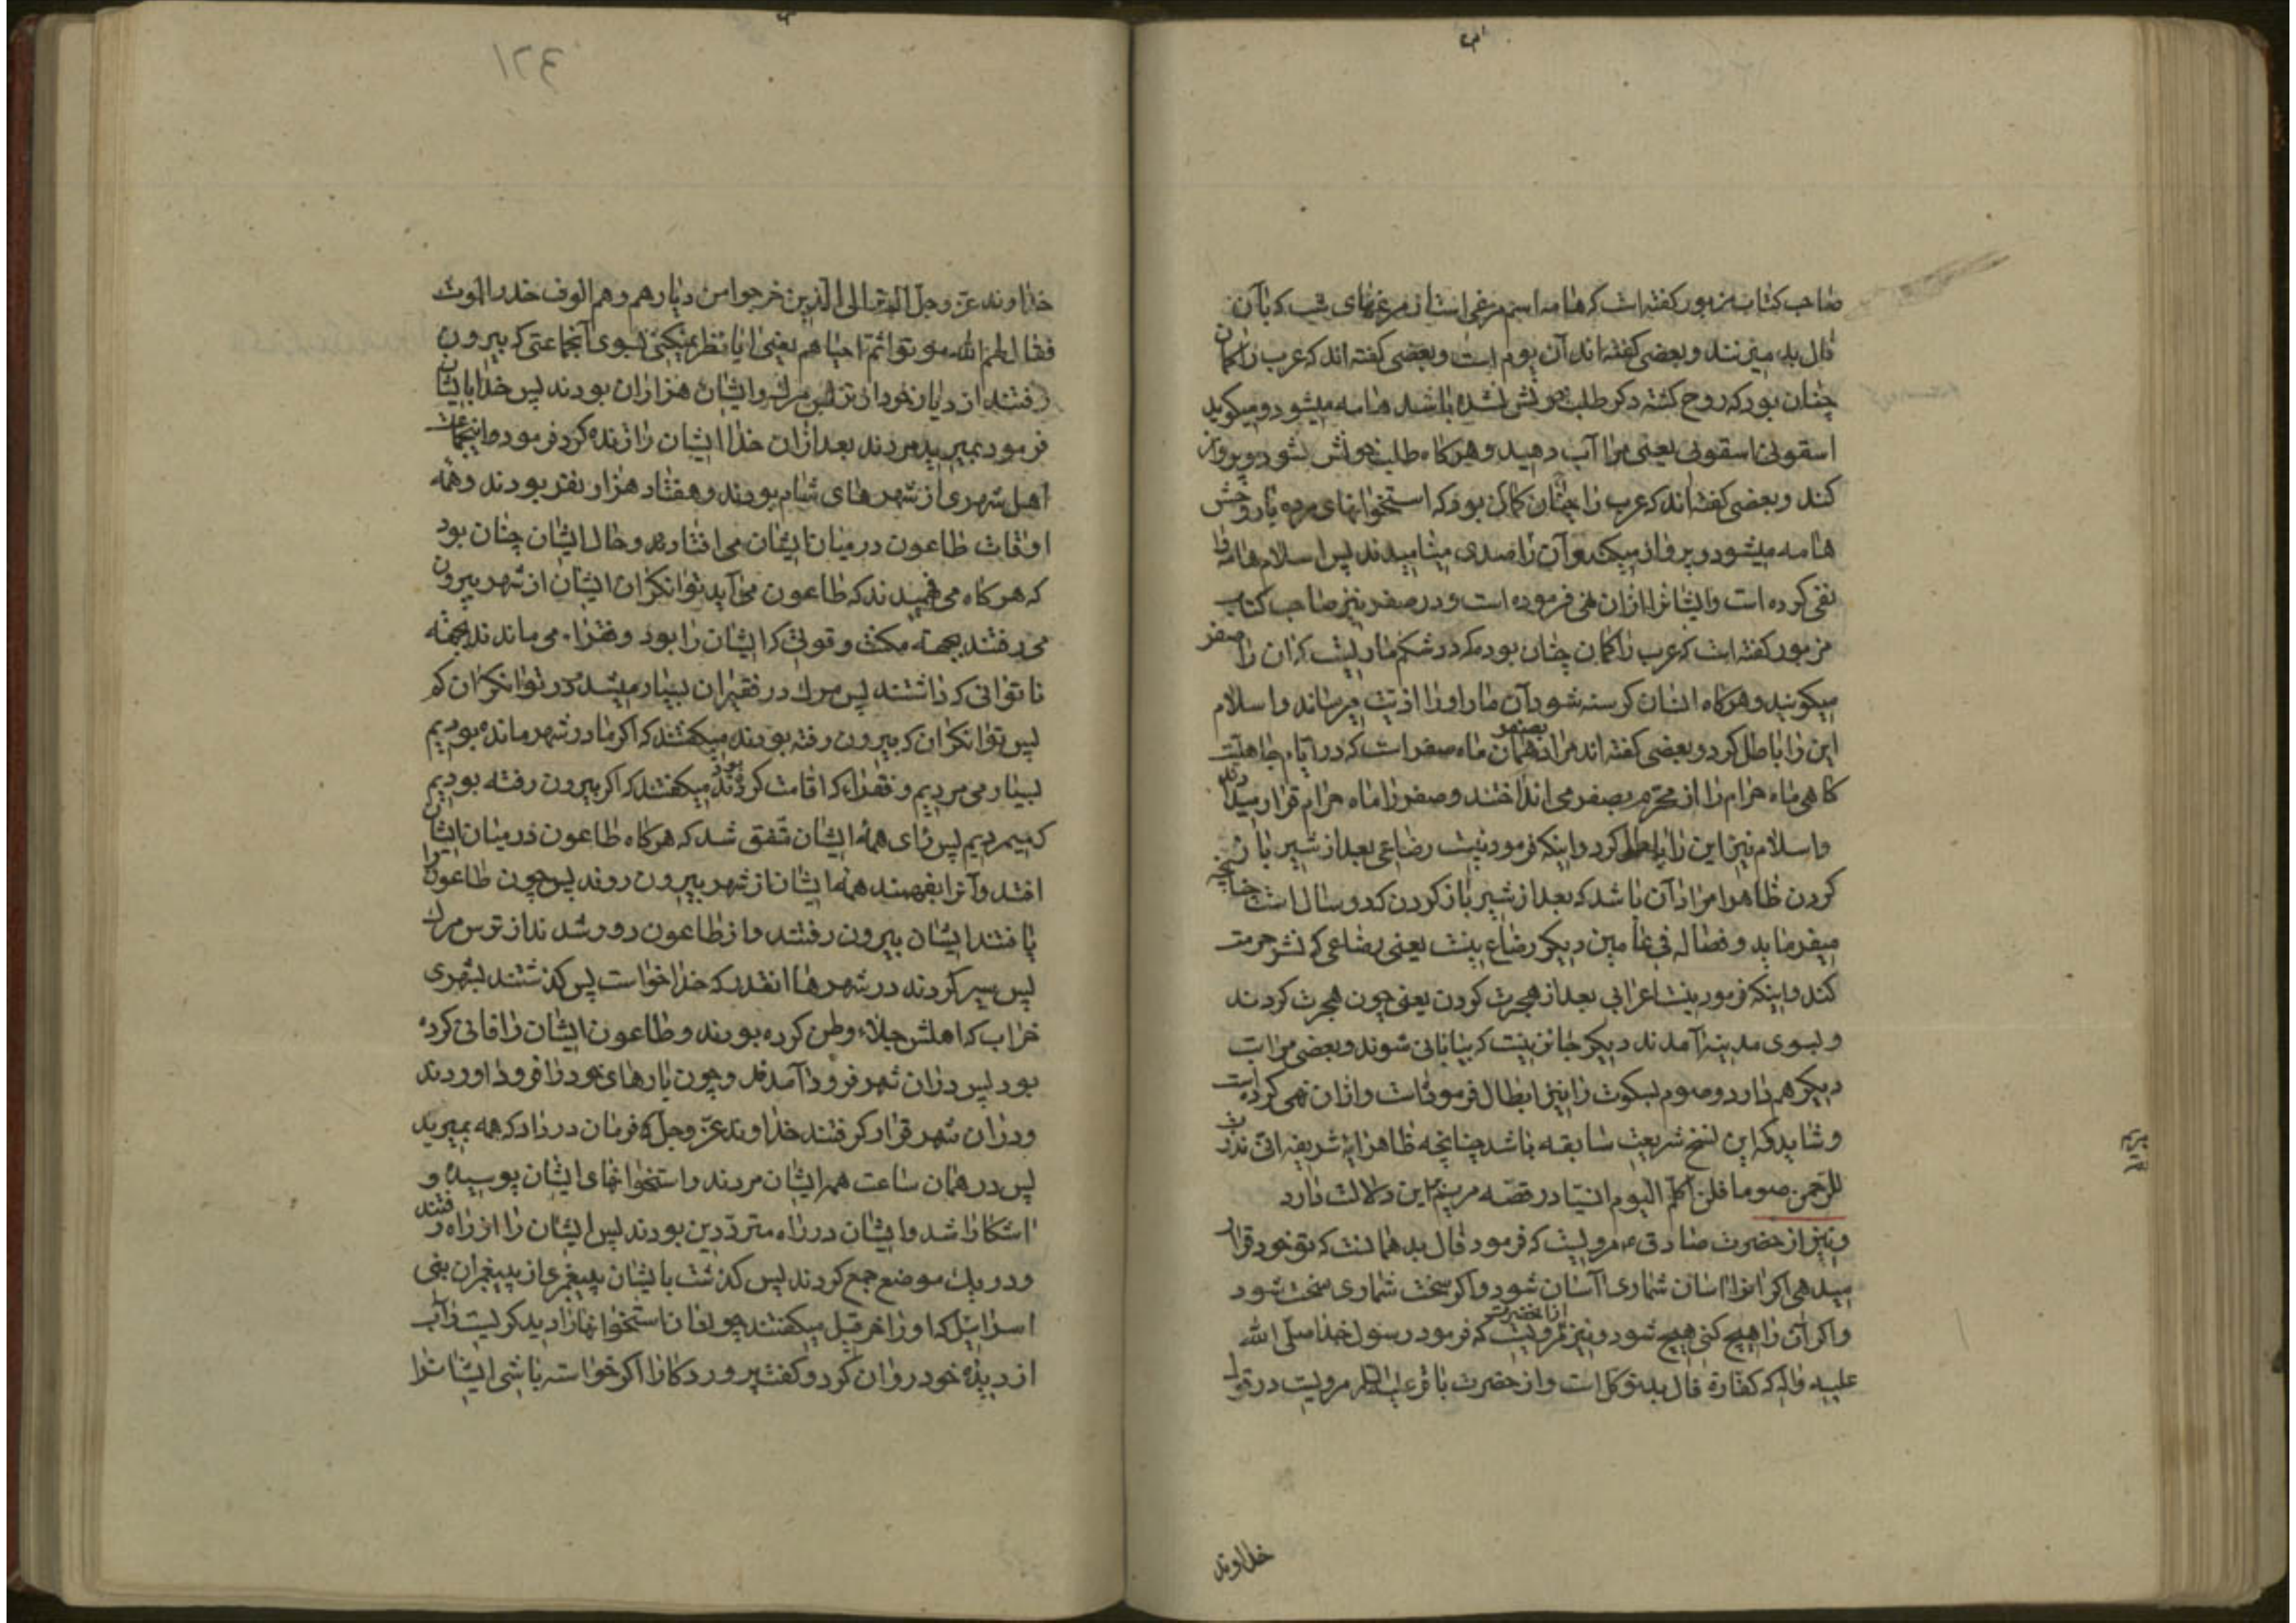 صاحب کتاب مزبور کفته است که هامه اسم مرغی است از مرغهای شب که بآن
فال بد میزنند و بعضی کفته اند آن بوم است و بعضی کفته اند که عرب را کمان
چنان بود که روح کشته دکر طلب خونش نشده باشد هامه میشود و میکوید
اسقونی اسقونی یعنی مرا آب دهید و هرکاه طلب خونش بشود پرواز
کند و بعضی کفته اند که عرب را چنان کمان بود که استخوانهای مرده یا روحش
هامه میشود و پرواز میکند و آن را صدی مینامیدند پس اسلام هامه را
نفی کرده است و ایشانرا ازان نهی فرموده است و در صفر نیز صاحب کتاب
مزبور کفته است که عرب را کمان چنان بود که در شکم ماریست که ان را صفر
میکویند و هرکاه انسان کرسنه شود آن مار او را اذیت میرساند و اسلام
این را باطل کرد و بعضی کفته اند مراد بصفر همان ماه صفر است که در ایام جاهلیت
کاهی ماه حرام را از محرم بصفر می انداختند و صفر را ماه حرام قرار میدادند
و اسلام نیز این را باطل کرد و اینکه فرمود نیست رضاعی بعد از شیر باز
کردن ظاهرا مراد آن باشد که بعد از شیر باز کردن که دو سال است چنانچه
میفرماید و فصاله فی عامین دیکر رضاع نیست یعنی رضاعی که نشر حرمت
کند و اینکه فرمود نیست اعرابی بعد از هجرت کردن یعنی چون هجرت کردند
و بسوی مدینه آمدند دیکر جائز نیست که بیابانی شوند و بعضی مراتب
دیکر هم دارد و صوم بسکوت را نیز ابطال فرمودات و ازان نهی کرده است
و شاید که این نسخ شریعت سابقه باشد چنانچه ظاهر ایه شریفه انی نذرت
للرحمن صوما فلن اکلم الیوم انسیا در قصه مریم باین دلالت دارد
و نیز از حضرت صادق ع مرویست که فرمود فال بد همانست که تو خود قرار
میدهی اکر انرا اسان شماری آسان شود و اکر سخت شماری سخت شود
و اکر آن را هیچ کنی هیچ شود و نیز ازانحضرت مرویست که فرمود رسول خدا صلی الله
علیه واله که کفارة فال بد توکل است و از حضرت باقر علیه السلام مرویست در قول
خداوند
١٢٤
خداوند عز و جل الم تر الی الذین خرجوا من دیارهم و هم الوف حذر الموت
فقال لهم الله موتوا ثم احیاهم یعنی ایا نظر نمیکنی بسوی آنجماعتی که بیرون
رفتند از دیار خود از ترس مرک و ایشان هزاران بودند پس خدا بایشان
فرمود بمیرید مردند بعد ازان خدا ایشان را زنده کرد فرمود اینجماعت
اهل شهری از شهرهای شام بودند و هفتاد هزار نفر بودند و همه
اوقات طاعون در میان ایشان می افتاد و حال ایشان چنان بود
که هرکاه می فهمیدند که طاعون می آید توانکران ایشان از شهر بیرون
می رفتند بجهة مکنت و قوتی که ایشان را بود و فقراء می ماندند بجهة
ناتوانی که داشتند پس مرک در فقیران بسیار میشد و در توانکران کم
پس توانکران که بیرون رفته بودند میکفتند که اکر ما در شهر مانده بودیم
بسیار می مردیم و فقراء که اقامت کرده بودند میکفتند که اکر بیرون رفته بودیم
کم میمردیم پس رای همه ایشان متفق شد که هرکاه طاعون در میان ایشان
افتد و آنرا بفهمند همه ایشان از شهر بیرون روند پس چون طاعون را
یافتند ایشان بیرون رفتند و از طاعون دور شدند از ترس مرک
پس سیر کردند در شهرها انقدر که خدا خواست پس کذشتند بشهری
خراب که اهلش جلاء وطن کرده بودند و طاعون ایشان را فانی کرده
بود پس دران شهر فرود آمدند و چون بارهای خود را فرود اوردند
و دران شهر قرار کرفتند خداوند عز و جل فرمان در داد که همه بمیرید
پس در همان ساعت همه ایشان مردند و استخوانهای ایشان پوسیده و
اشکارا شد و ایشان در راه مترددین بودند پس ایشان را از راه رفتند
و در یک موضع جمع کردند پس کذشت بایشان پیغمبری از پیغمبران بنی
اسرائیل که او را حزقیل میکفتند چون ان استخوانها را دید کریست و آب
از دیده خود روان کرد و کفت پروردکارا اکر خواسته باشی ایشانرا